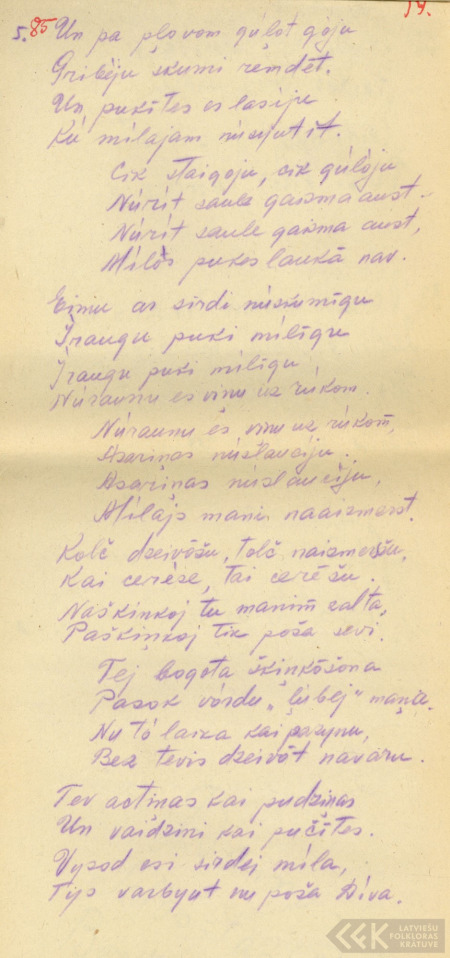 14.
5. 85 Un pa pļovom guļot goju
Gribēju skumi remdēt.
Un pukites es lasiju
Ku milajam nusyutit.
Cik staigoju, cik gulōju
Nurit saule gaisma aust.
Nurit saule gaisma aust,
Milōs pukes laukā nav.
Eimu ar sirdi nuskumīgu
Iraugu puki milīgu
Iraugu puki milīgu
Nuraunu es viņu uz rukom.
Nuraunu es viņu uz rukom,
Asariņas nuslauciju.
Asariņas nuslauciju,
Milajs mani naaizmerst.
Kolč dzeivōšu, tolč naizmeršu,
Kai cerēse, tai cerēšu.
Naškinkoj tu manim zalta,
Paškinkoj tik poša sevi.
Tej bogota škinkōšona
Pasok vōrdu „ļubej" maņa.
Nu tō laika kai pazynu,
Bez tevis dzeivōt navaru.
Tev actiņas kai pudziņas
Un vaidziņi kai pučītes.
Vysod esi sirdej mila,
Tys varbyut nu poša Diva.
LATVIEŠU
FOLKLORAS
KRATUVE